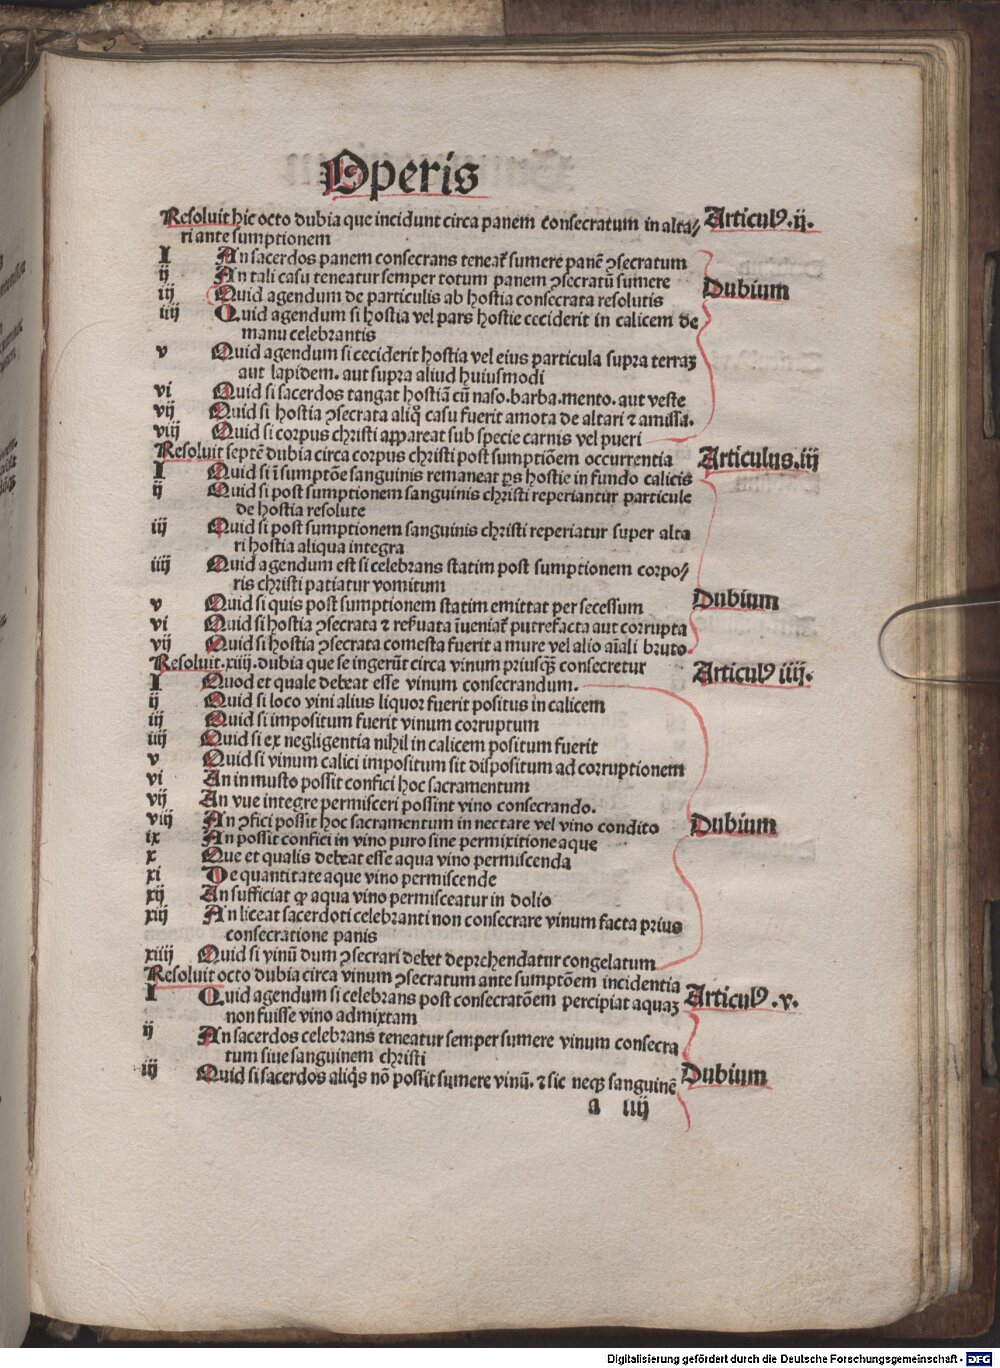 Operis
Resoluit hic octo dubia que incidunt circa panem consecratum in alta⸗ Articulꝰ .ij.
ri ante sumptionem
I An sacerdos panem consecrans teneat̃ sumere panẽ ꝯsecratum
ij An tali casu teneatur semper totum panem ꝯsecratũ sumere
iij Quid agendum de particulis ab hostia consecrata resolutis Dubium
iiij Quid agendum si hostia vel pars hostie ceciderit in calicem de
manu celebrantis
v Quid agendum si ceciderit hostia vel eius particula supra terraꝫ
aut lapidem. aut supra aliud huiusmodi
vi Quid si sacerdos tangat hostiã cũ naso. barba. mento. aut veste
vij Quid si hostia ꝯsecrata aliq̃ casu fuerit amota de altari ⁊ amissa.
viij Quid si corpus christi appareat sub specie carnis vel pueri
Resoluit septẽ dubia circa corpus christi post sumptiõem occurrentia Articulus .iij
I Quid si ĩ sumptõe sanguinis remaneat ꝑs hostie in fundo calicis
ij Quid si post sumptionem sanguinis christi reperiantur particule
de hostia resolute
iij Quid si post sumptionem sanguinis christi reperiatur super alta
ri hostia aliqua integra
iiij Quid agendum est si celebrans statim post sumptionem corpo⸗
ris christi patiatur vomitum
v Quid si quis post sumptionem statim emittat per secessum Dubium
vi Quid si hostia ꝯsecrata ⁊ reẽuata ĩueniat̃ putrefacta aut corrupta
vij Quid si hostia ꝯsecrata comesta fuerit a mure vel alio aĩali bruto.
Resoluit .xiiij. dubia que se ingerũt circa vinum priusqꝫ consecretur Articulꝰ iiij.
I Quod et quale debeat esse vinum consecrandum.
ij Quid si loco vini alius liquor fuerit positus in calicem
iij Quid si impositum fuerit vinum corruptum
iiij Quid si ex negligentia nihil in calicem positum fuerit
v Quid si vinum calici impositum sit dispositum ad corruptionem
vi An in musto possit confici hoc sacramentum
vij An vue integre permisceri possint vino consecrando.
viij An ꝯfici possit hoc sacramentum in nectare vel vino condito Dubium
ix An possit confici in vino puro sine permixtione aque
x Que et qualis debeat esse aqua vino permiscenda
xi De quantitate aque vino permiscende
xij An sufficiat ꝙ aqua vino permisceatur in dolio
xiij An liceat sacerdoti celebranti non consecrare vinum facta prius
consecratione panis
xiiij Quid si vinũ dum ꝯsecrari debet deprehendatur congelatum
Resoluit octo dubia circa vinum ꝯsecratum ante sumptõem incidentia Articulꝰ .v.
I Quid agendum si celebrans post consecratõem percipiat aquaꝫ
non fuisse vino admixtam
ij An sacerdos celebrans teneatur semper sumere vinum consecra
tum siue sanguinem christi
iij Quid si sacerdos aliq̃s nõ possit sumere vinũ. ⁊ sic neqꝫ sanguinẽ Dubium
a iiij
Digitalisierung gefördert durch die Deutsche Forschungsgemeinschaft - DFG